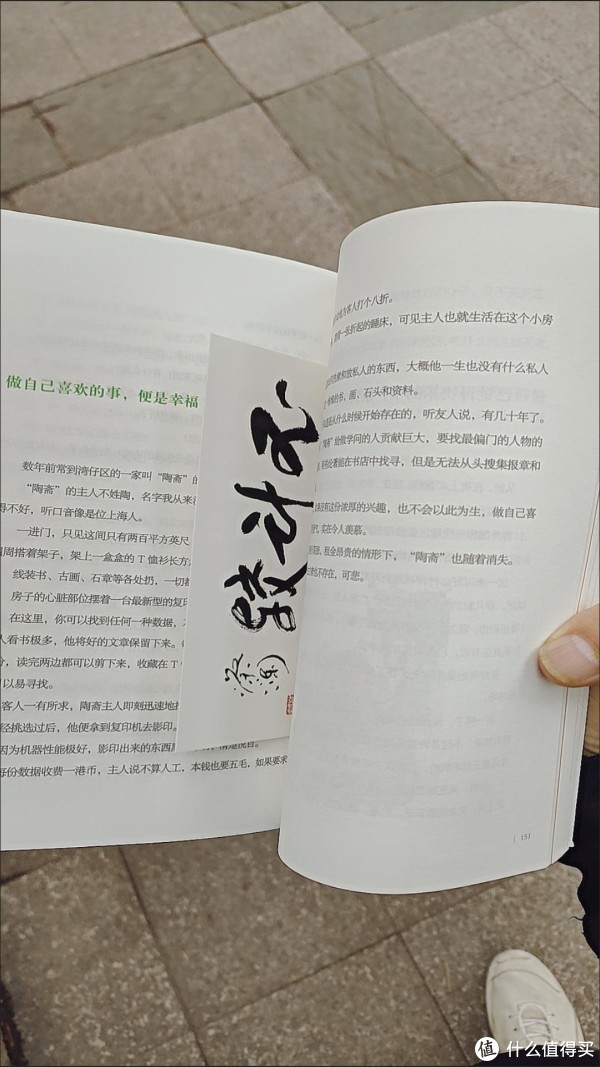 做自己喜欢的事，便是幸福
数年前常到湾仔区的一家叫“陶斋”的
“陶斋”的主人不姓陶，名字我从来
得不好，听口音像是位上海人。
一进门，只见这间只有两百平方英尺
周搭着架子，架上一盒盒的T恤衫长方
线装书、古画、石章等各处扔，一切都
房子的心脏部位摆着一台最新型的复印
在这里，你可以找到任何一种数据，
人看书极多，他将好的文章保留下来。
分，读完两边都可以剪下来，收藏在T
以易寻找。
客人一有所求，陶斋主人即刻迅速地
经挑选过后，他便拿到复印机去影印。
因为机器性能极好，影印出来的东西
每份数据收费一港币，主人说不算人工，本钱也要五毛，如果要求
不计较
蔡澜
客人打个八折。
一张折起的睡床，可见主人也就生活在这个小房
私人的东西，大概他一生也没有什么私人
的书、画、石头和资料。
从什么时候开始存在的，听友人说，有几十年了。
给做学问的人贡献巨大，要找最偏门的人物的
著能在书店中找寻，但是无法从头搜集报章和
这份浓厚的兴趣，也不会以此为生，做自己喜
实在令人羡慕。
租金昂贵的情形下，“陶斋”也随着消失。
不存在，可悲。
151
值 什么值得买